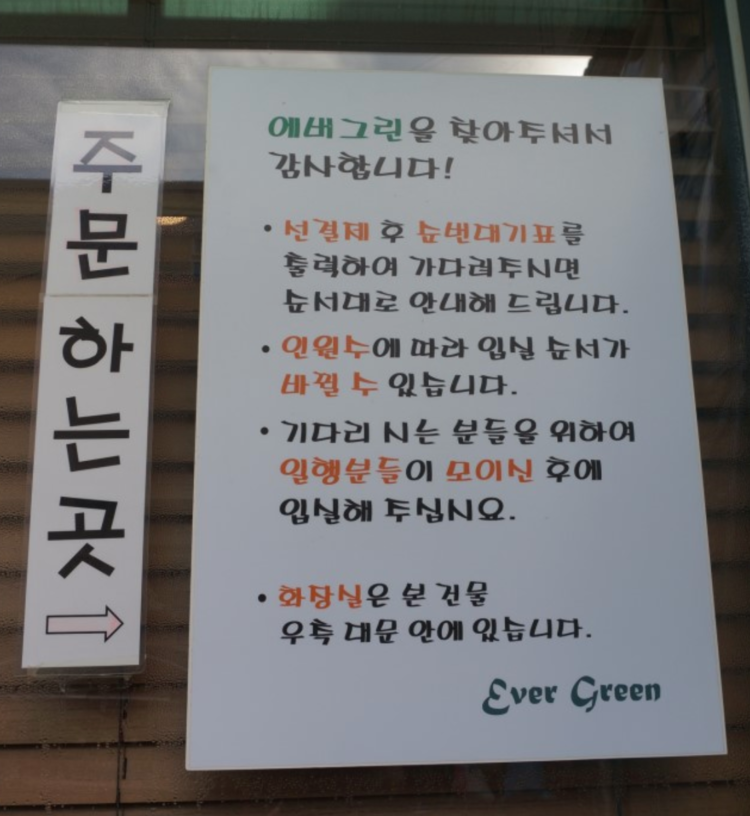 주문하는곳
에버그린을 찾아주셔서
감사합니다!
• 선결제 후 순번대기표를
출력하여 가다려주시면
순서대로 안내해 드립니다.
• 인원수에 따라 입실 순서가
바뀔 수 있습니다.
• 기다리 시는 분들을 위하여
일행분들이 모이신 후에
입실해 주십시요.
• 화장실은 본 건물
우측 대문 안에 있습니다.
Ever Green